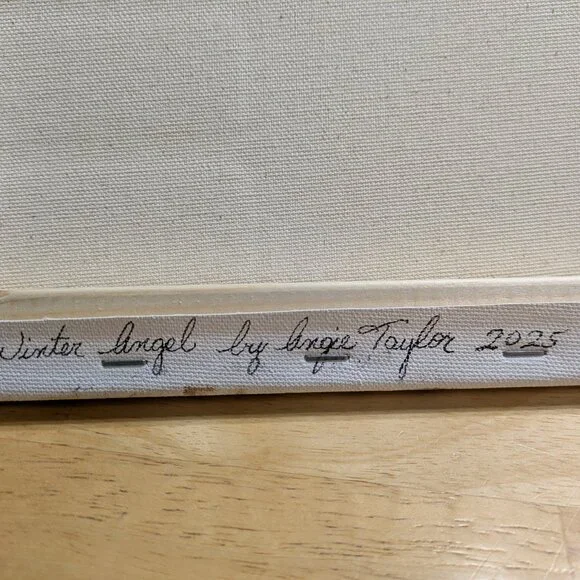 Winter Angel by Angie Taylor 2025